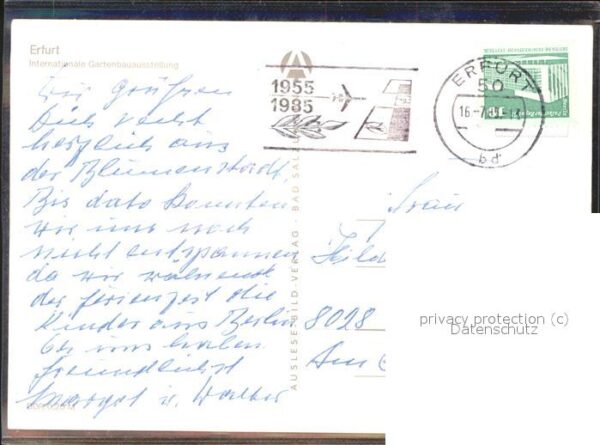 Erfurt
Internationale Gartenbauausstellung
Wir grüßen
Dich recht
herzlich aus
der Blumenstadt.
Bis dato konnten
wir uns noch
nicht entspannen
da wir während
der Ferienzeit die
Kinder aus Berlin
bei uns haben
freundlichst
Margot u. Walter
AUSLESE-BILD-VERLAG · BAD SAL
1955
1985
ERFURT
50
16.-7
bd
Frau
Hild
8028
Am
privacy protection (c)
Datenschutz